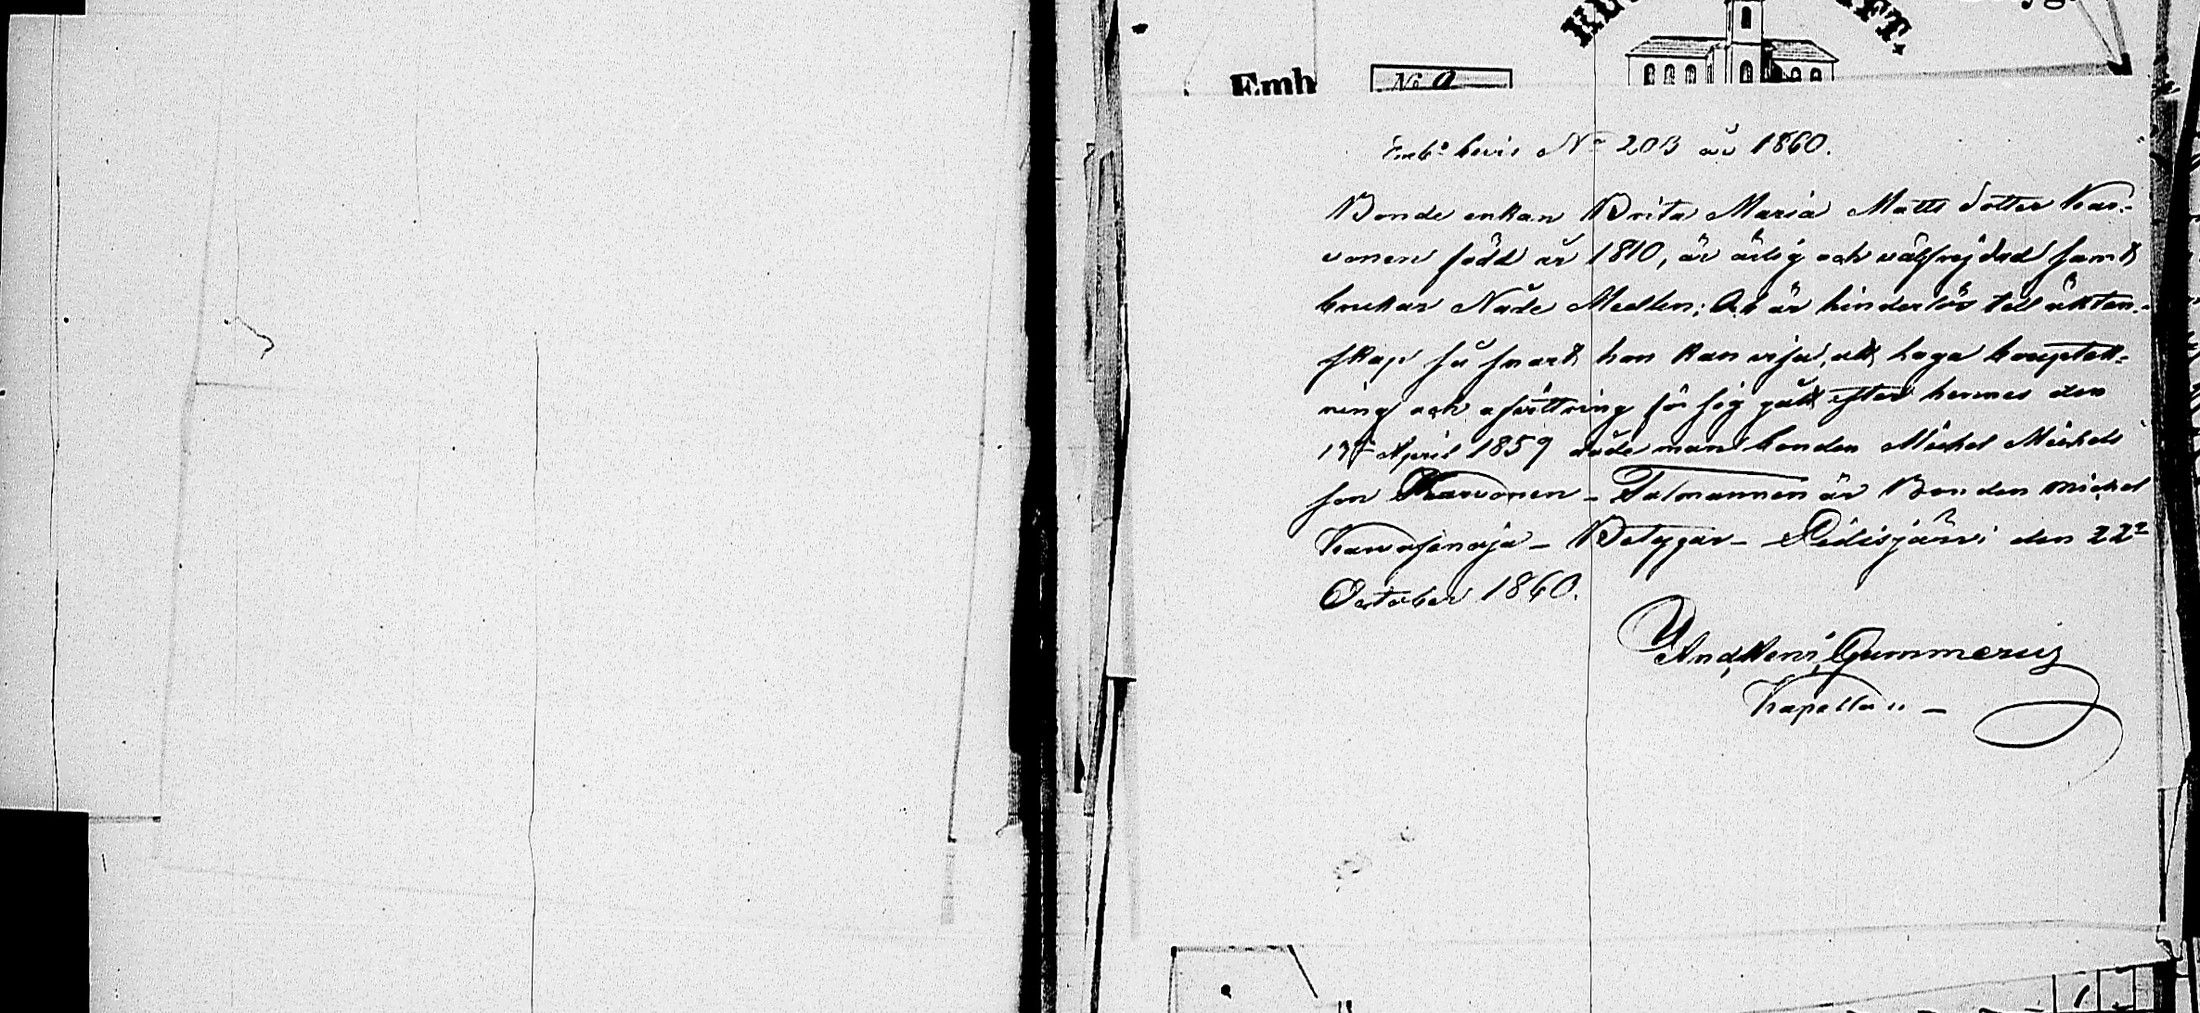 Emb
No
Emb: bevis No 203 år 1860.
Bonde enkan Brita Maria Matts dotter Kar-
vonen född år 1810, är ärlig och välfrejdad samt
brukar Nåde Medlen; Och är hinderlös till äkten-
skap så snart hon kan visa, att laga bouptek-
ning och afvittring för sig gått efter hennes den
April 1859 döde man bonden Michel Michels
son Karvonen - Talmannen är Bonden Michel
Betygar - Pidisjärvi den 22
October 1860.
And, Henr, Gummerus
Kapellan -